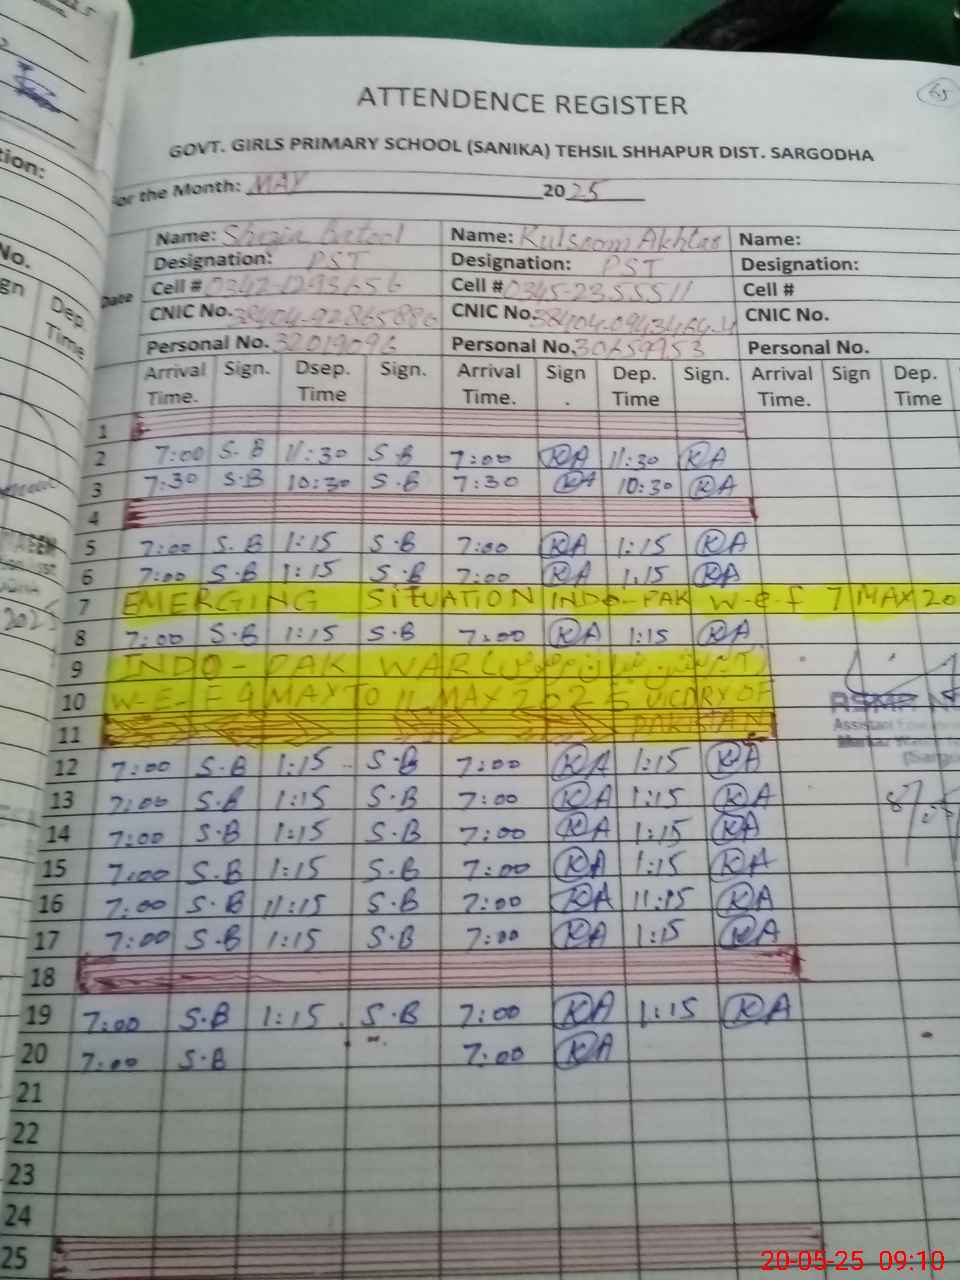 65
ATTENDENCE REGISTER
GOVT. GIRLS PRIMARY SCHOOL (SANIKA) TEHSIL SHHAPUR DIST. SARGODHA
For the Month: MAY 2025
Name: Shazia Batool Name: Kulsoom Akhtar Name:
Designation: PST Designation: PST Designation:
Date Cell # 0342-1293656 Cell # 0345-2355511 Cell #
CNIC No. CNIC No. CNIC No.
Personal No. 32019096 Personal No. 30659953 Personal No.
Arrival Sign. Dsep. Sign. Arrival Sign Dep. Sign. Arrival Sign Dep.
Time. Time Time. . Time Time. Time
1
2 7:00 S.B 11:30 S.B 7:00 KA 11:30 KA
3 7:30 S.B 10:30 S.B 7:30 KA 10:30 KA
4
5 7:00 S.B 1:15 S.B 7:00 KA 1:15 KA
6 7:00 S.B 1:15 S.B 7:00 KA 1.15 KA
7 EMERGING SITUATION INDO-PAK W-e-f 7 MAY 20
8 7:00 S.B 1:15 S.B 7:00 KA 1:15 KA
9 INDO-PAK WAR
10 W-E-F 9 MAY TO 11 MAY 2025 VICTRY OF
11 PAKISTAN
12 7:00 S.B 1:15 S.B 7:00 KA 1:15 KA
13 7:00 S.B 1:15 S.B 7:00 KA 1:15 KA
14 7:00 S.B 1:15 S.B 7:00 KA 1:15 KA
15 7:00 S.B 1:15 S.B 7:00 KA 1:15 KA
16 7:00 S.B 11:15 S.B 7:00 KA 11:15 KA
17 7:00 S.B 1:15 S.B 7:00 KA 1:15 KA
18
19 7:00 S.B 1:15 S.B 7:00 KA 1:15 KA
20 7:00 S.B 7:00 KA
21
22
23
24
25
No.
Dep.
Time
20-05-25 09:10